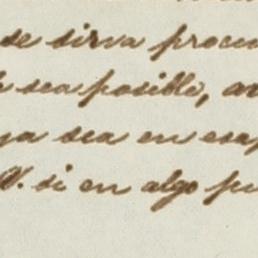 se sirva procu
sea posible, a
ya sea en esa
V. si en algo pu